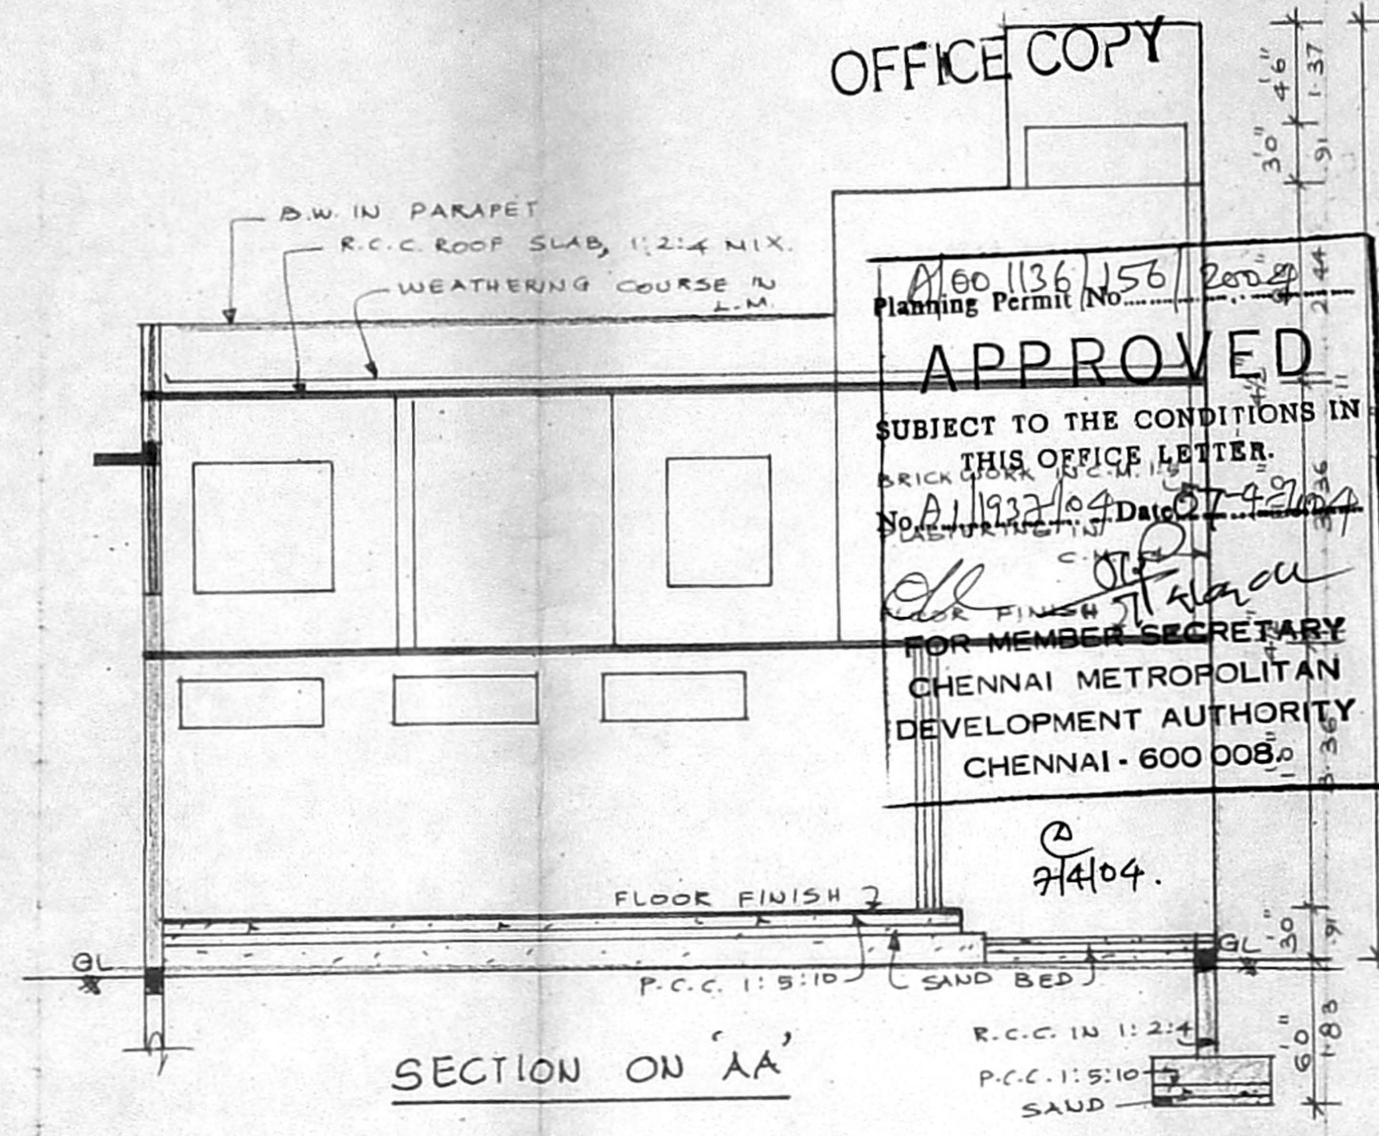 OFFICE COPY
B.W. IN PARAPET
R.C.C. ROOF SLAB, 1:2:4 MIX.
WEATHERING COURSE IN
L.M.
4'6"
1.37
3'0"
.91
2.44
Planning Permit No. 2004
APPROVED
SUBJECT TO THE CONDITIONS IN
THIS OFFICE LETTER.
BRICK WORK IN C.M. 1:5
No. A1/1937/04 Date 27-4-2004
PLASTURING IN
C.M.
FLOOR FINISH
FOR MEMBER SECRETARY
CHENNAI METROPOLITAN
DEVELOPMENT AUTHORITY
CHENNAI - 600 008.
3.36
3.36
7/4/04.
FLOOR FINISH
GL
GL
3'0"
.91
P.C.C. 1:5:10
SAND BED
R.C.C. IN 1:2:4
P.C.C. 1:5:10
SAND
6'0"
1.83
SECTION ON 'AA'